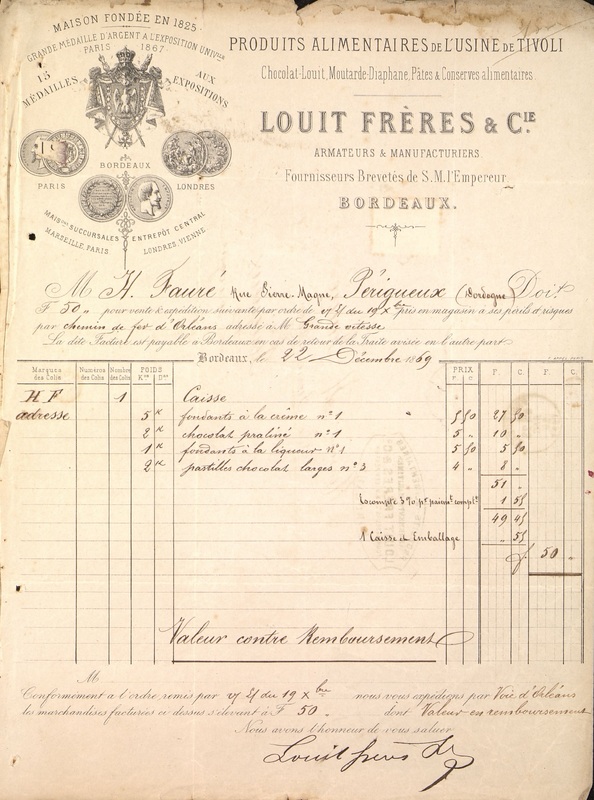 MAISON FONDÉE EN 1825
GRANDE MÉDAILLE D'ARGENT A L'EXPOSITION UNIVelle
PARIS 1867
15 MÉDAILLES AUX EXPOSITIONS
BORDEAUX
PARIS
LONDRES
MAISons SUCCURSALES ENTREPÔT CENTRAL
MARSEILLE, PARIS LONDRES, VIENNE
PRODUITS ALIMENTAIRES DE L'USINE DE TIVOLI
Chocolat-Louit, Moutarde-Diaphane, Pâtes & Conserves alimentaires
LOUIT FRÈRES & CIE
ARMATEURS & MANUFACTURIERS
Fournisseurs Brevetés de S.M. l'Empereur
BORDEAUX.
M H. Fauré Rue Pierre-Magne, Périgueux (Dordogne) Doit
F 50 „ pour vente & expédition suivante par ordre de du 19 Xbre pris en magasin a ses périls et risques
par chemin de fer d'Orléans adressé a M Grande vitesse
La dite Facture est payable à Bordeaux en cas de retour de la Traite avisée en l'autre part
Bordeaux, le 22 Décembre 1869
Marques des Colis Numéros des Colis Nombre des Colis POIDS PRIX F. C. F. C.
HF 1 Caisse
adresse 5K fondants à la crême n°1 5 50 27 50
2K chocolat praliné n°1 5 „ 10 „
1K fondants à la liqueur n°1 5 50 5 50
2K pastilles chocolat larges n°3 4 „ 8 „
51 „
Escompte 3% pr paiemt comptt 1 55
49 45
1 Caisse et Emballage „ 55
f. 50 „
Valeur contre Remboursement
M
Conformément a l'ordre remis par du 19 Xbre nous vous expédions par Voie d'Orléans
les marchandises facturées ci dessus s'élevant à F 50 „ dont Valeur en remboursement
Nous avons l'honneur de vous saluer
Louit frères